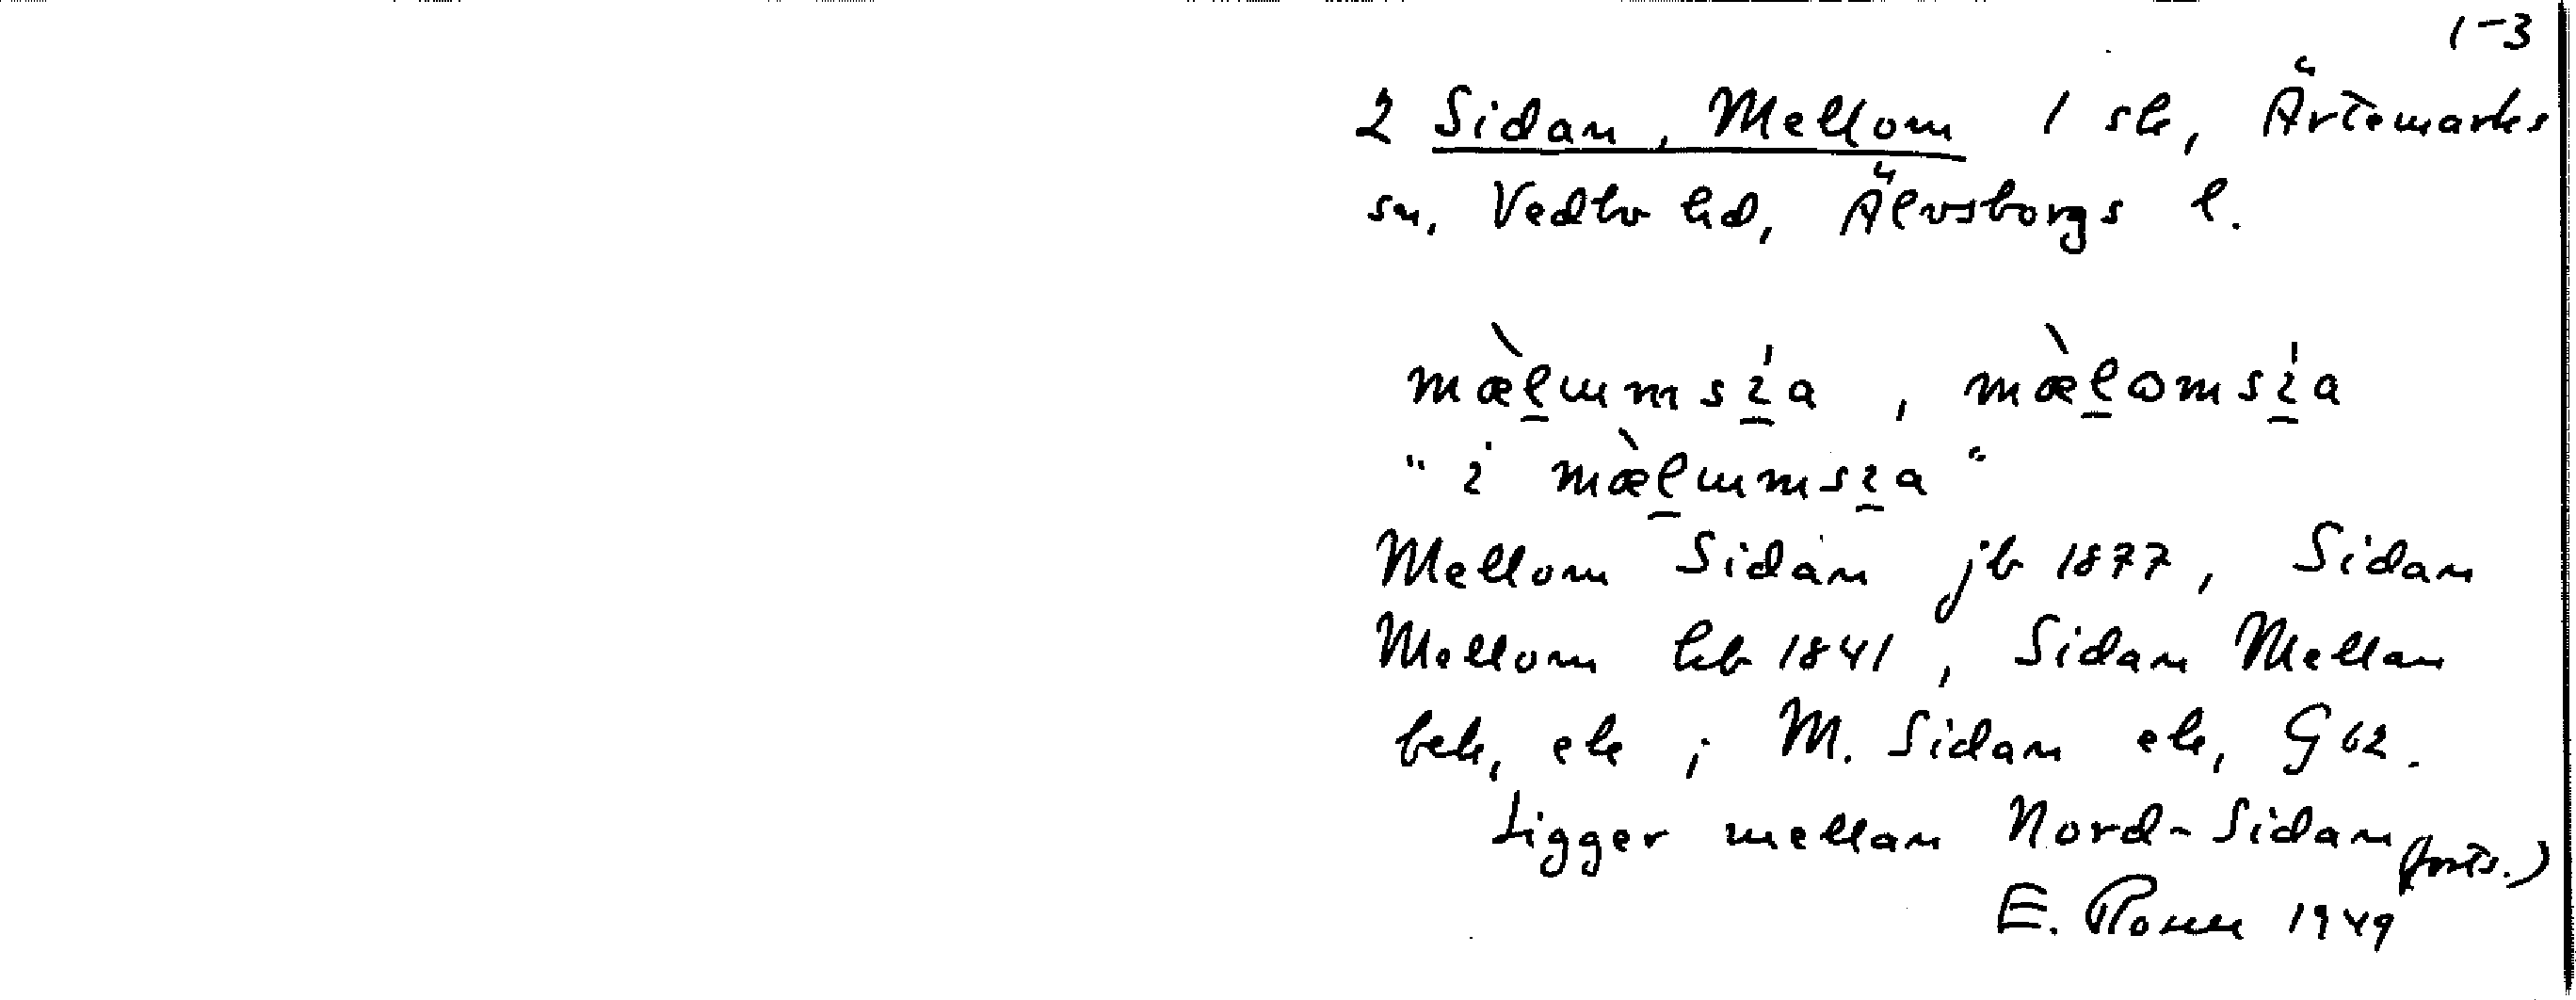 1-3
2 Sidan, Mellom 1 sk, Ärtemarks
sn, Vedbo hd, Älvsborgs l.
mæ̀l̲ɯmsı̲́a, mæ̀l̲ωmsı̲́a
"ı mæ̀l̲ɯmsı̲a"
Mellom Sidan jb 1877, Sidan
Mellom kb 1841, Sidan Mellan
bek, ek; M. Sidan ek, G 62.
Ligger mellan Nord-Sidan (forts.)
E. 1949